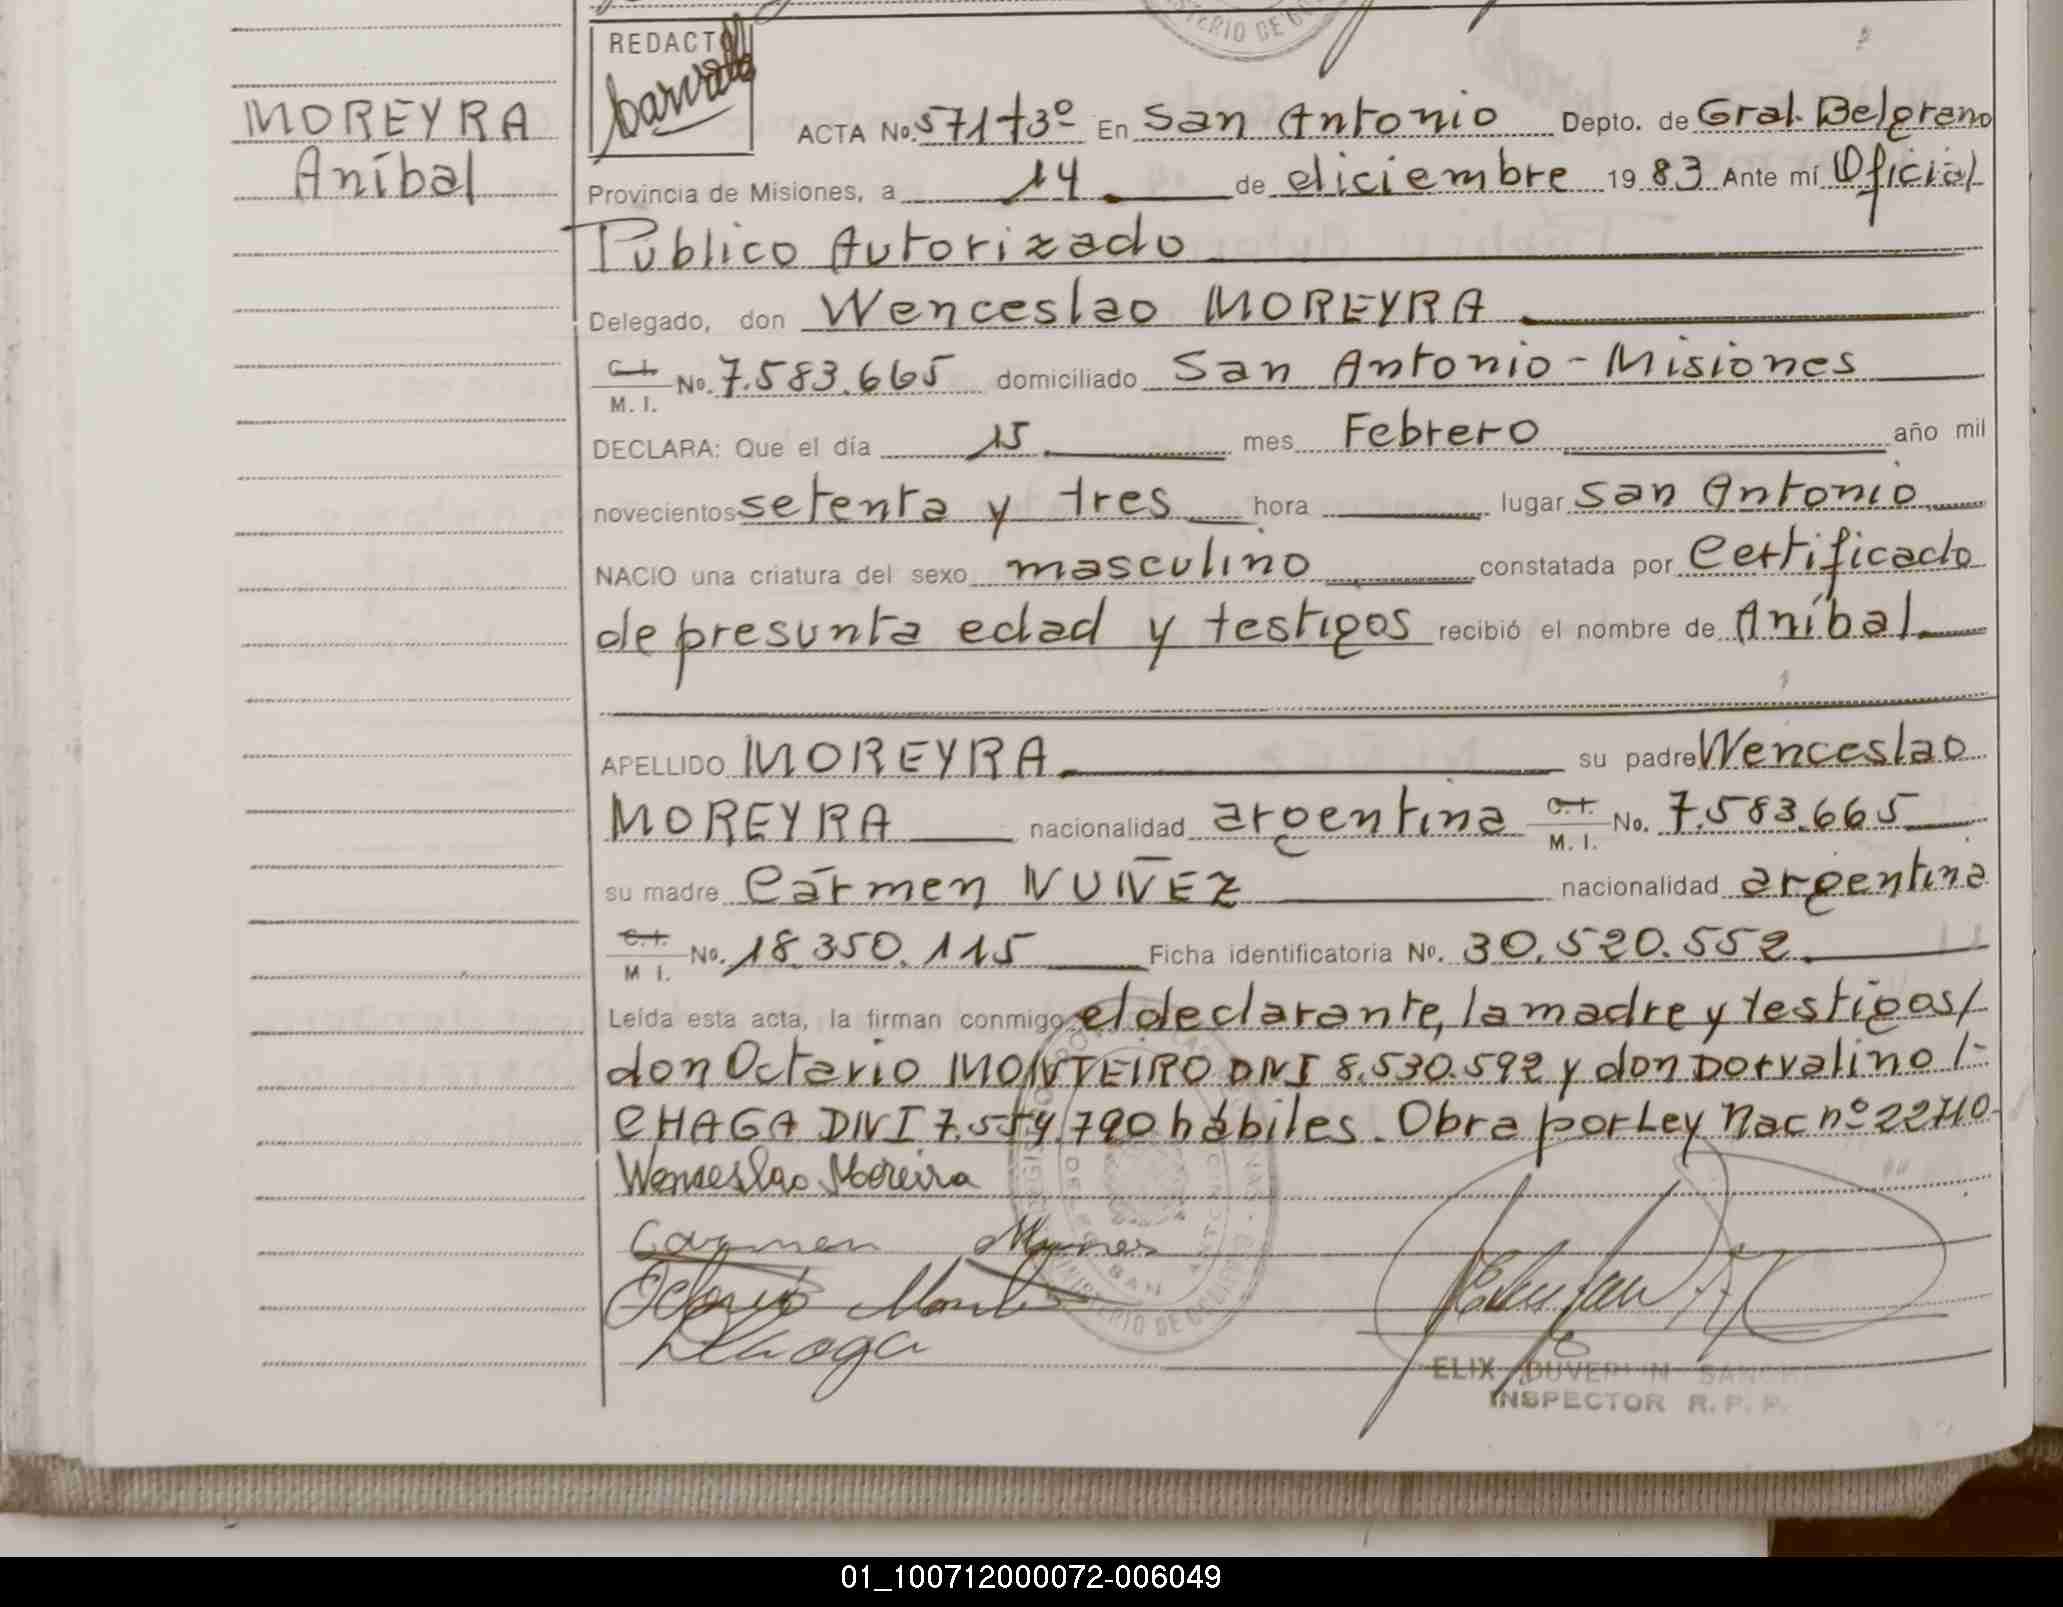 REDACTO
MOREYRA
Aníbal
ACTA No. 571 t3º En San Antonio Depto. de Gral. Belgrano
Provincia de Misiones, a 14 de diciembre 19 83 Ante mí Oficial
Público Autorizado
Delegado, don Wenceslao MOREYRA
C. I. M. I. No. 7.583.665 domiciliado San Antonio - Misiones
DECLARA: Que el día 15 mes Febrero año mil
novecientos setenta y tres hora lugar San Antonio
NACIO una criatura del sexo masculino constatada por Certificado
de presunta edad y testigos recibió el nombre de Aníbal
APELLIDO MOREYRA su padre Wenceslao
MOREYRA nacionalidad argentina C. I. M. I. No. 7.583.665
su madre Cármen NUÑEZ nacionalidad argentina
C. I. M I. No. 18.350.115 Ficha identificatoria No. 30.520.552
Leída esta acta, la firman conmigo el declarante, la madre y testigos/
don Octavio MONTEIRO DNI 8.530.592 y don Dorvalino /-
CHAGA DNI 7.554.790 hábiles. Obra por Ley Nac nº 22710-
Wenseslao Moreira
Carmen
Chaga
INSPECTOR R. P. P.
01_100712000072-006049